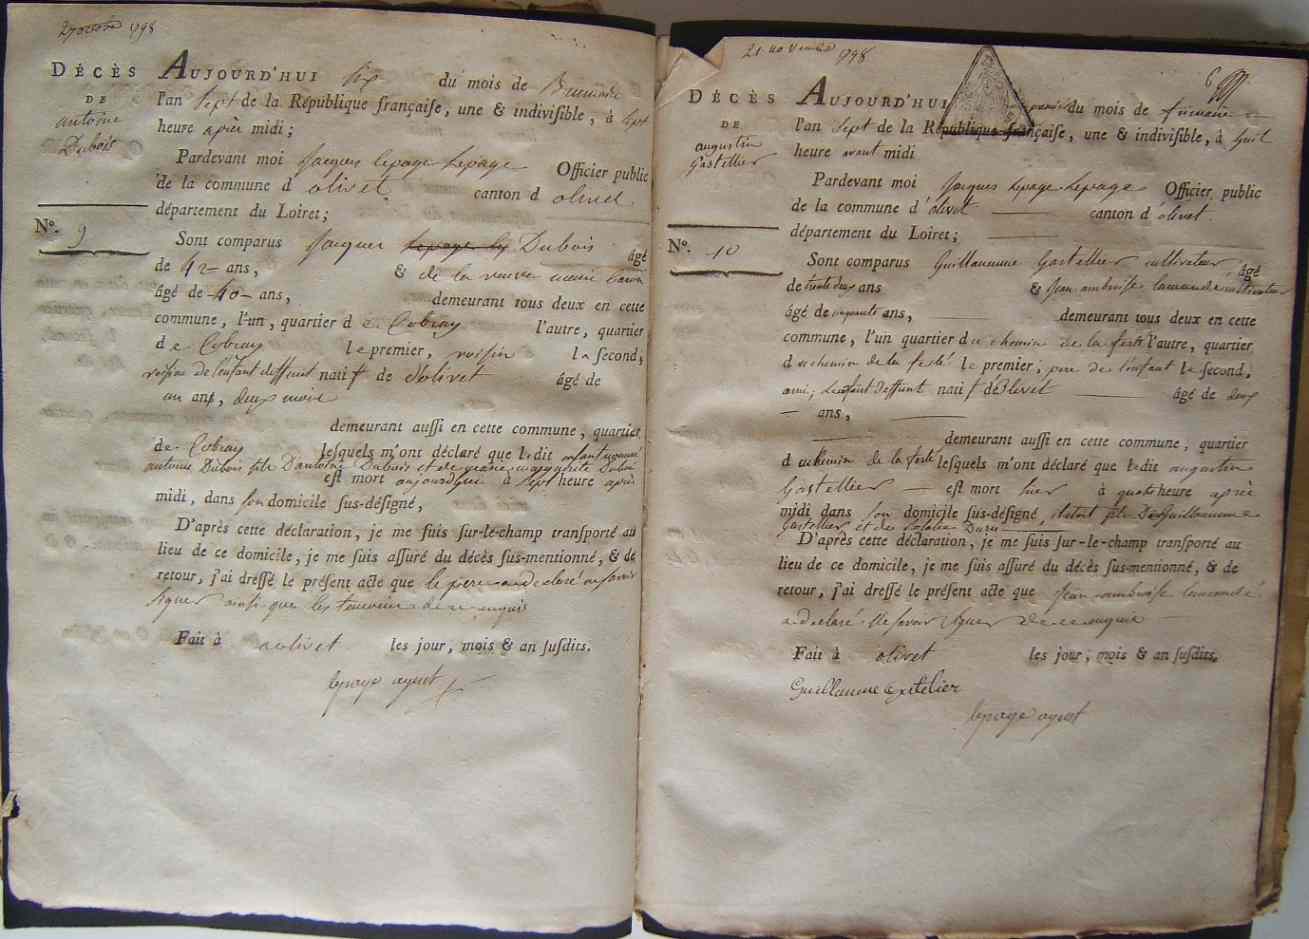 27 octobre 1798
DÉCÈS
DE
antoine
Dubois
N°. 9
AUJOURD'HUI six du mois de Brumaire
l'an sept de la République françaiſe, une & indiviſible, à sept
heure après midi ;
Pardevant moi Jacques lepage Lepage Officier public
de la commune d olivet canton d olivet
département du Loiret ;
Sont comparus Jacques Dubois âgé
de 42 ans, & de la veuve marie
âgé de 40 ans, demeurant tous deux en cette
commune, l'un, quartier d e Cobray l'autre, quartier
d e Cobray le premier, voisin le ſecond,
voisine de l'enfant deffunt natif de d'olivet âgé de
un ans, deux mois
demeurant auſſi en cette commune, quartier
de Cobray leſquels m'ont déclaré que ledit enfant nommé
antoine Dubois fils D'antoine Dubois et de marie margueritte
eſt mort aujourd'hui à sept heure après
midi, dans son domicile ſus-déſigné,
D'après cette déclaration, je me ſuis ſur-le-champ tranſporté au
lieu de ce domicile, je me ſuis aſſuré du décès ſus-mentionné, & de
retour, j'ai dreſſé le préſent acte que le père a declaré ne savoir
signer ainsi que les temoins de ce enquis
Fait à olivet les jour, mois & an ſuſdits.
lepage agent
21 novembre 1798
6
DÉCÈS
DE
augustin
Gastellier
N°. 10
AUJOURD'HUI premier du mois de frimaire
l'an sept de la République françaiſe, une & indiviſible, à huit
heure avant midi
Pardevant moi Jacques Lepage Lepage Officier public
de la commune d'olivet canton d'olivet
département du Loiret ;
Sont comparus Guillaumme Gastellier cultivateur âgé
de trente deux ans & Jean ambroise lamande cultivateur
âgé de cinquante ans, demeurant tous deux en cette
commune, l'un quartier du chemin de la ferté l'autre, quartier
d u chemin de la ferté le premier, pere de l'enfant le ſecond,
ami, l'enfant deffunt natif d'olivet âgé de deux
ans,
demeurant auſſi en cette commune, quartier
d u chemin de la ferté leſquels m'ont déclaré que ledit augustin
Gastellier eſt mort hier à quatre heure après
midi dans son domicile ſus-déſigné, étoit fils De Guillaumme
Gastellier et de
D'après cette déclaration, je me ſuis ſur-le-champ tranſporté au
lieu de ce domicile, je me ſuis aſſuré du décès ſus-mentionné, & de
retour, j'ai dreſſé le préſent acte que Jean ambroise lamande
a declaré ne savoir signer de ce enquis
Fait à olivet les jour, mois & an ſuſdits.
Guillaume Gastelier
lepage agent